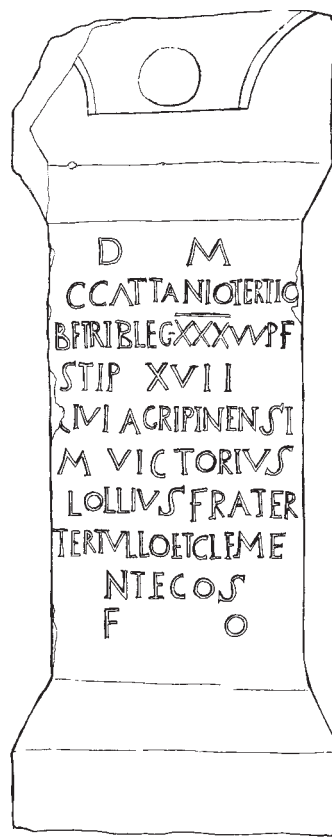 D M
CCATTANIOTERTIO
BFTRIBLEGXXXVVPF
STIP XVII
CIVI ACRIPINENSI
M VICTORIVS
LOLLIVSFRATER
TERTVLLOETCLEME
NTECOS
F O